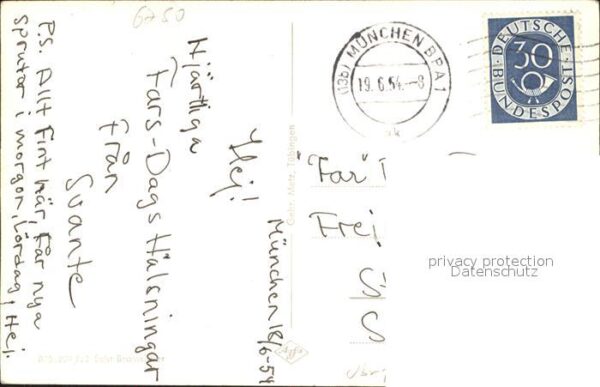 6750
München 18/6-54
Hej!
Hjärtliga
Fars-Dags Hälsningar
från
Svante
P.S. Allt Fint här, får nya
sprutor i morgon, Lördag, Hej.
Gebr. Metz, Tübingen
Agfa
(13b) MÜNCHEN BPA 1
19.6.54.-8
DEUTSCHE
30
BUNDESPOST
"Far"
Frei
S
S
privacy protection
Datenschutz